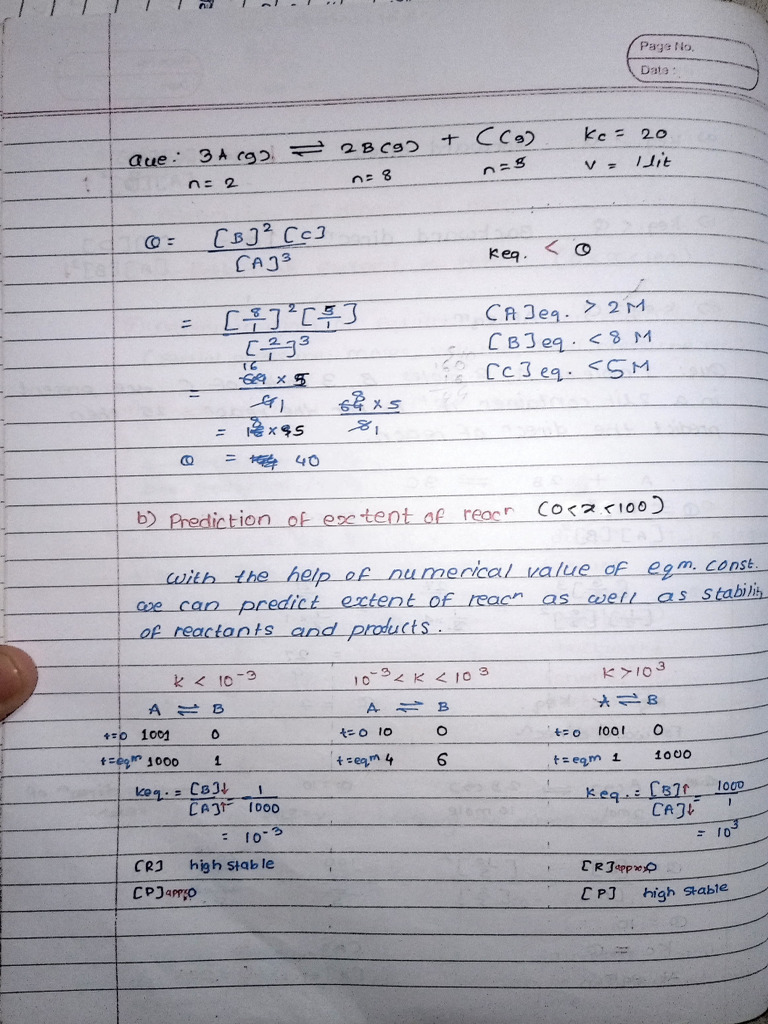 Page No.
Date :
Que: 3A(g) ⇌ 2B(g) + C(g) Kc = 20
n=2 n=8 n=5 V = 1 lit
Q = [B]² [C] / [A]³ Keq. < Q
= [8/1]² [5/1] / [2/1]³ [A]eq. > 2M
[B]eq. < 8 M
[C]eq. < 5M
= 64 × 5 / 8 1
Q = 40
b) Prediction of extent of reacn (0<x<100)
With the help of numerical value of eqm. const.
we can predict extent of reacn as well as stability
of reactants and products.
K < 10⁻³ 10⁻³ < K < 10³ K > 10³
A ⇌ B A ⇌ B A ⇌ B
t=0 1001 0 t=0 10 0 t=0 1001 0
t=eqm 1000 1 t=eqm 4 6 t=eqm 1 1000
Keq. = [B]↓ / [A]↑ = 1 / 1000 Keq. = [B]↑ / [A]↓ = 1000 / 1
= 10⁻³ = 10³
[R] high stable [R] approx 0
[P] approx 0 [P] high stable